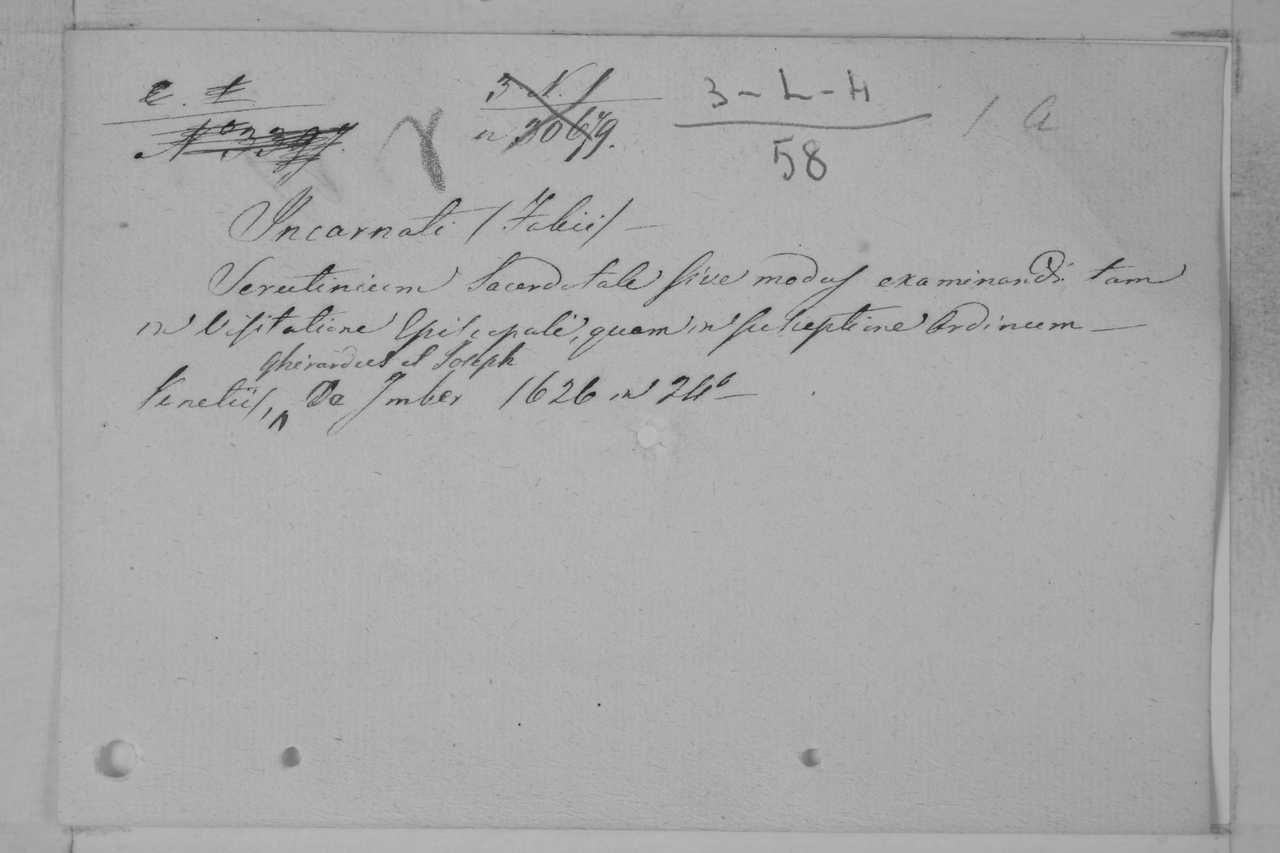 3-L-H
58
1 a
Incarnati (Fabii) —
Scrutinium Sacerdotale sive modus examinandi tam
in Visitatione Episcopali, quam in susceptione Ordinum —
Gherardus et Joseph
Venetiis, ^ De Imber 1626 in 24º —